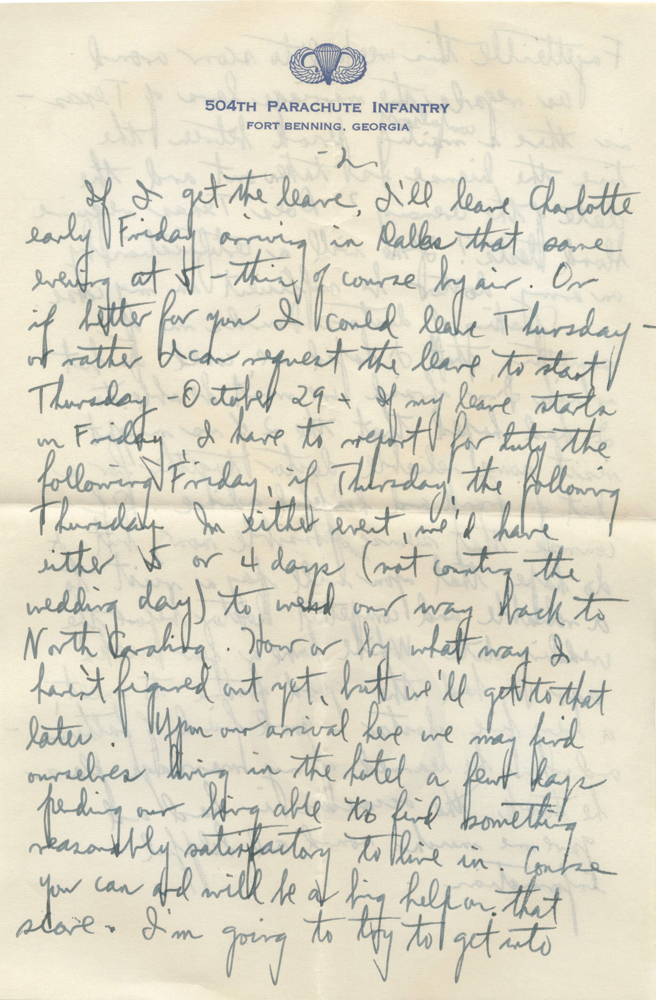 504TH PARACHUTE INFANTRY
FORT BENNING, GEORGIA
- 2
If I get the leave, I'll leave Charlotte
early Friday arriving in Dallas that same
evening at 5 - this of course by air. Or
if better for you I could leave Thursday -
or rather I can request the leave to start
Thursday - October 29 + If my leave starts
on Friday, I have to report for duty the
following Friday, if Thursday, the following
Thursday. In either event, we'd have
either 5 or 4 days (not counting the
wedding day) to wend our way back to
North Carolina. How or by what way I
haven't figured out yet, but we'll get to that
later. Upon our arrival here we may find
ourselves living in the hotel a few days
pending our being able to find something
reasonably satisfactory to live in. Course
you can and will be a big help on that
score. I'm going to try to get into